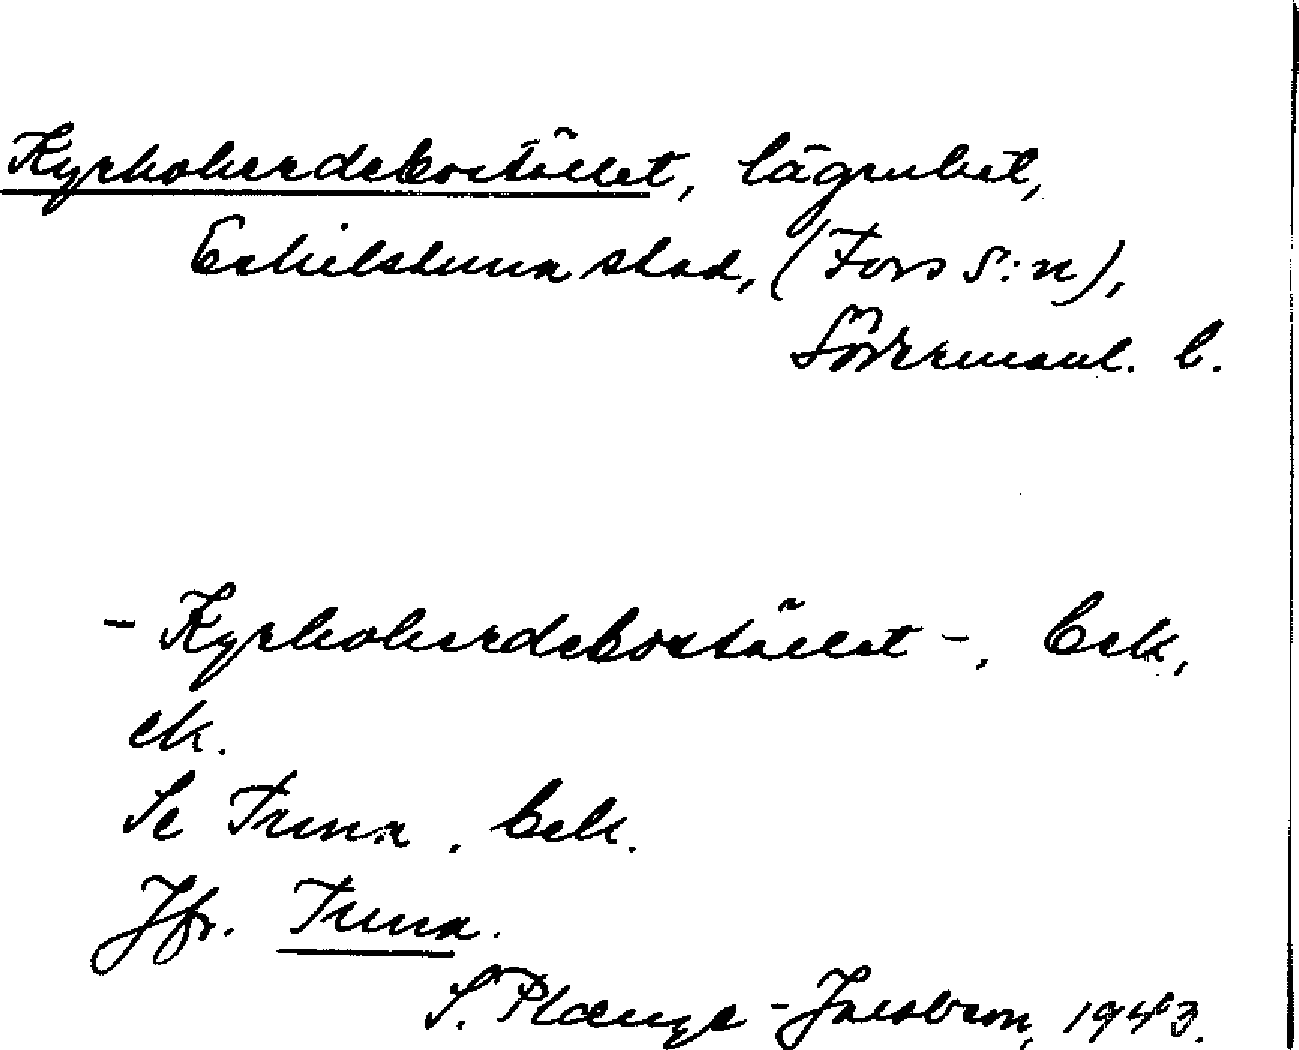 Kyrkoherdebostället, lägenhet,
Eskilstuna stad, (Fors S:n),
Södermanl. l.
- Kyrkoherdebostället -, Eek,
ek.
Se Tuna, Eek.
Jfr. Tuna.
S. Plænge-Jacobson, 1943.